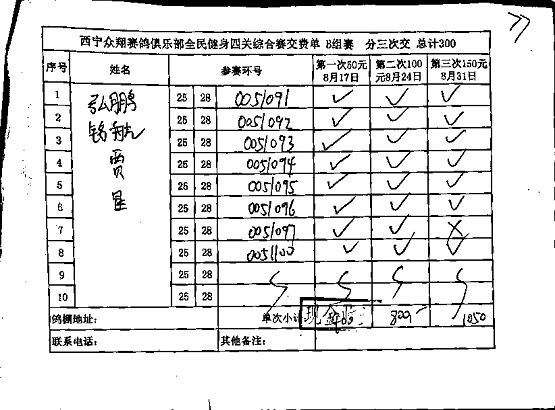 西宁众翔赛鸽俱乐部全民健身四关综合赛交费单 B组赛 分三次交 总计300
序号 姓名 参赛环号 第一次50元 8月17日 第二次100元8月24日 第三次150元 8月31日
1 弘鹏 25 28 0051091 ✓ ✓ ✓
2 25 28 0051092 ✓ ✓ ✓
3 贾 25 28 0051093 ✓ ✓ ✓
4 25 28 0051094 ✓ ✓ ✓
5 星 25 28 0051095 ✓ ✓ ✓
6 25 28 0051096 ✓ ✓ ✓
7 25 28 0051097 ✓ ✓ ×
8 25 28 0051100 ✓ ✓
9 25 28
10 25 28
鸽棚地址: 单次小计 现金 800 1050
联系电话: 其他备注: